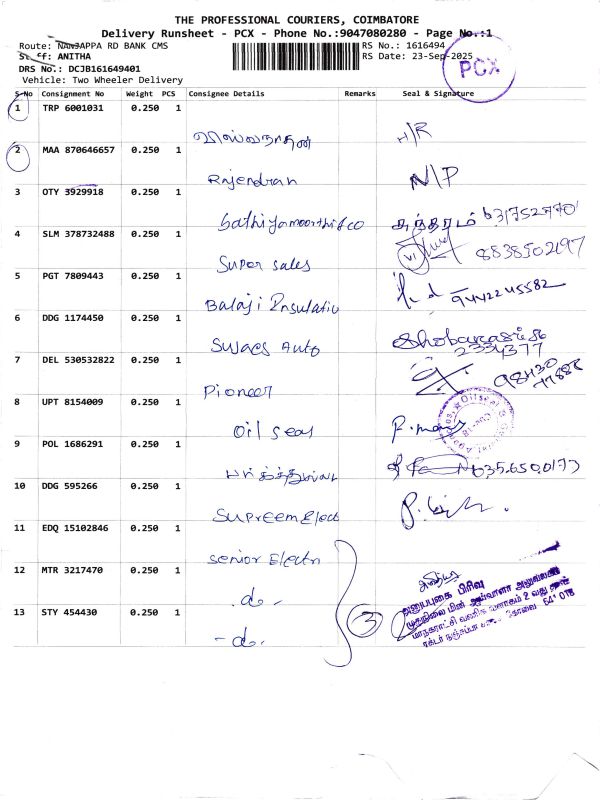 THE PROFESSIONAL COURIERS, COIMBATORE
Delivery Runsheet - PCX - Phone No.:9047080280 - Page No.:1
Route: NANJAPPA RD BANK CMS
RS No.: 1616494
Staff: ANITHA
RS Date: 23-Sep-2025
PCX
DRS No.: DCJB161649401
Vehicle: Two Wheeler Delivery
S-No Consignment No Weight PCS Consignee Details Remarks Seal & Signature
1 TRP 6001031 0.250 1 விஸ்வநாதன் H/R
2 MAA 870646657 0.250 1 Rajendran N/P
3 OTY 3929918 0.250 1 Sathiyamoorthi&co சுந்தரம்
4 SLM 378732488 0.250 1 Super sales VI 8838502197
5 PGT 7809443 0.250 1 Balaji Insulatio 9442245582
6 DDG 1174450 0.250 1 Swaes Auto 2334377
7 DEL 530532822 0.250 1 Pioneer 98430 77888
8 UPT 8154009 0.250 1 Oil seas
9 POL 1686291 0.250 1
10 DDG 595266 0.250 1 Supreem Elect
11 EDQ 15102846 0.250 1 Senior Electri
12 MTR 3217470 0.250 1 -do-
13 STY 454430 0.250 1 -do-
3
அனுப்புகை பிரிவு
முதுநிலை மின் ஆய்வாளர் அலுவலகம்
மாநகராட்சி வணிக வளாகம் 2 வது தளம்
641 018